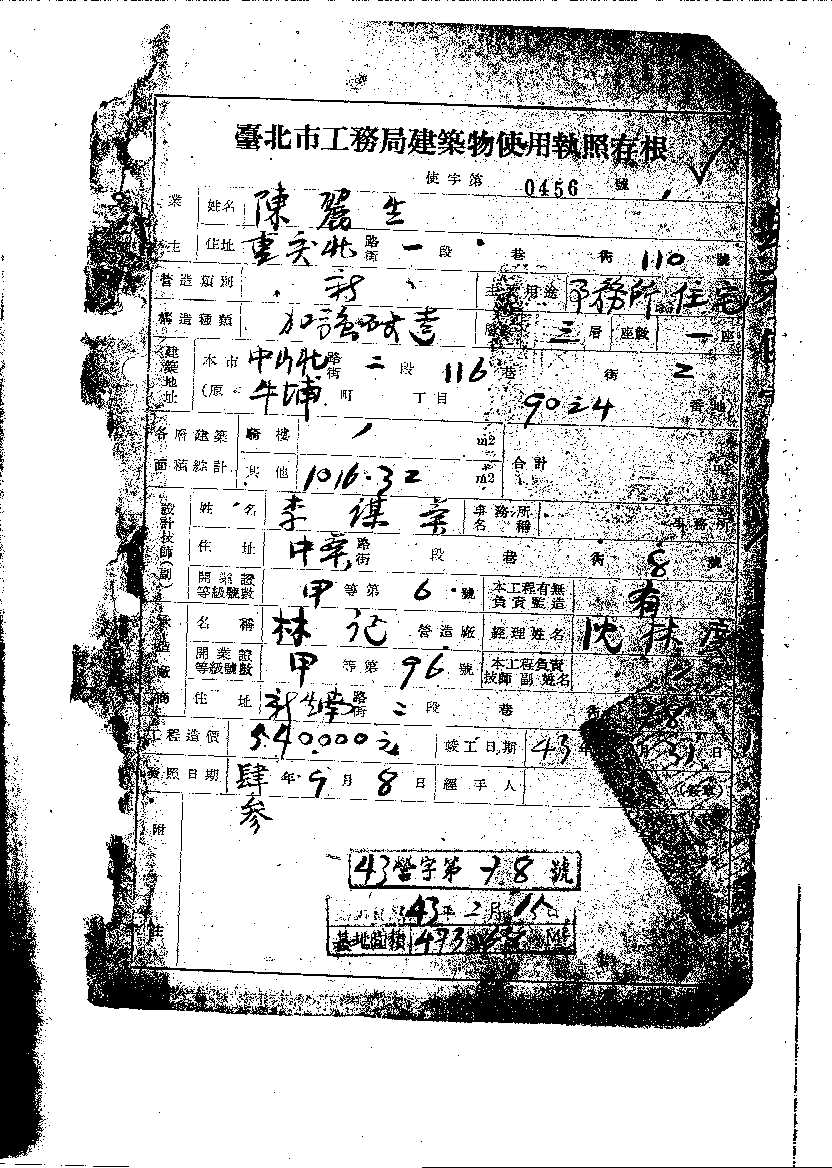 臺北市工務局建築物使用執照存根
使字第 0456 號
業主 姓名 陳麗生
住址 重慶北路街 一段 巷 街 110 號
營造類別 新 主要用途 事務所住宅
構造種類 加強磚造 層數 三層 座數 一座
建築地址 本市 中山北路街 二段 116 巷 街 2
(原 牛埔 町 丁目 90之4 番地)
各層建築面積綜計 騎樓 m2 合計
其他 1016.32 m2
設計技師(副) 姓名 李謀 事務所名稱 事務所
住址 中 路街 段 巷 街 8 號
開業證等級號數 甲等第 6 號 本工程有無負責監造 有
名稱 林記 營造廠 經理姓名 沈林
開業證等級號數 甲等第 96 號 本工程負責技師副姓名
住址 新生南路街 二段 巷 街 28
工程造價 540,000元 竣工日期 43年 月 31日
發照日期 肆參年 9月 8日 經手人
附註
43營字第 號
43年2月15日
基地面積 493 M2